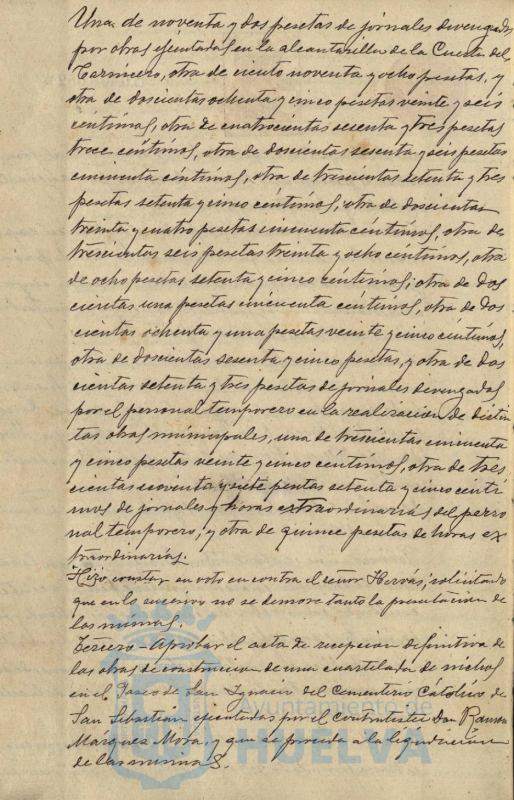 Una de noventa y dos pesetas de jornales devengados
por obras ejecutadas en la alcantarilla de la Cuesta del
Carnicero, otra de ciento noventa y ocho pesetas, y
otra de doscientas ochenta y cinco pesetas veinte y seis
céntimos, otra de cuatrocientas sesenta y tres pesetas
trece céntimos, otra de doscientas sesenta y seis pesetas
cincuenta céntimos, otra de trescientas setenta y tres
pesetas setenta y cinco céntimos; otra de doscientas
treinta y cuatro pesetas cincuenta céntimos, otra de
trescientas seis pesetas treinta y ocho céntimos, otra
de ocho pesetas setenta y cinco céntimos; otra de dos
cientas una pesetas cincuenta céntimos, otra de dos
cientas ochenta y una pesetas veinte y cinco céntimos,
otra de doscientas sesenta y cinco pesetas, y otra de dos
cientas setenta y tres pesetas de jornales devengados
por el personal temporero en la realización de distin
tas obras municipales, una de trescientas cincuenta
y cinco pesetas veinte y cinco céntimos, otra de tres
cientas noventa y siete pesetas setenta y cinco cénti
mos de jornales y horas extraordinarias del perso
nal temporero, y otra de quince pesetas de horas ex
traordinarias.
Hizo constar su voto en contra el señor Hervás, solicitando
que en lo sucesivo no se demore tanto la presentación de
las mismas.
Tercero - Aprobar el acta de recepción definitiva de
las obras de construcción de una cuartelada de nichos
en el Paseo de San Ignacio del Cementerio Católico de
San Sebastián ejecutadas por el contratista Don Ramón
Márquez Mora, y que se proceda a la liquidación
de las mismas.
Ayuntamiento de
HUELVA